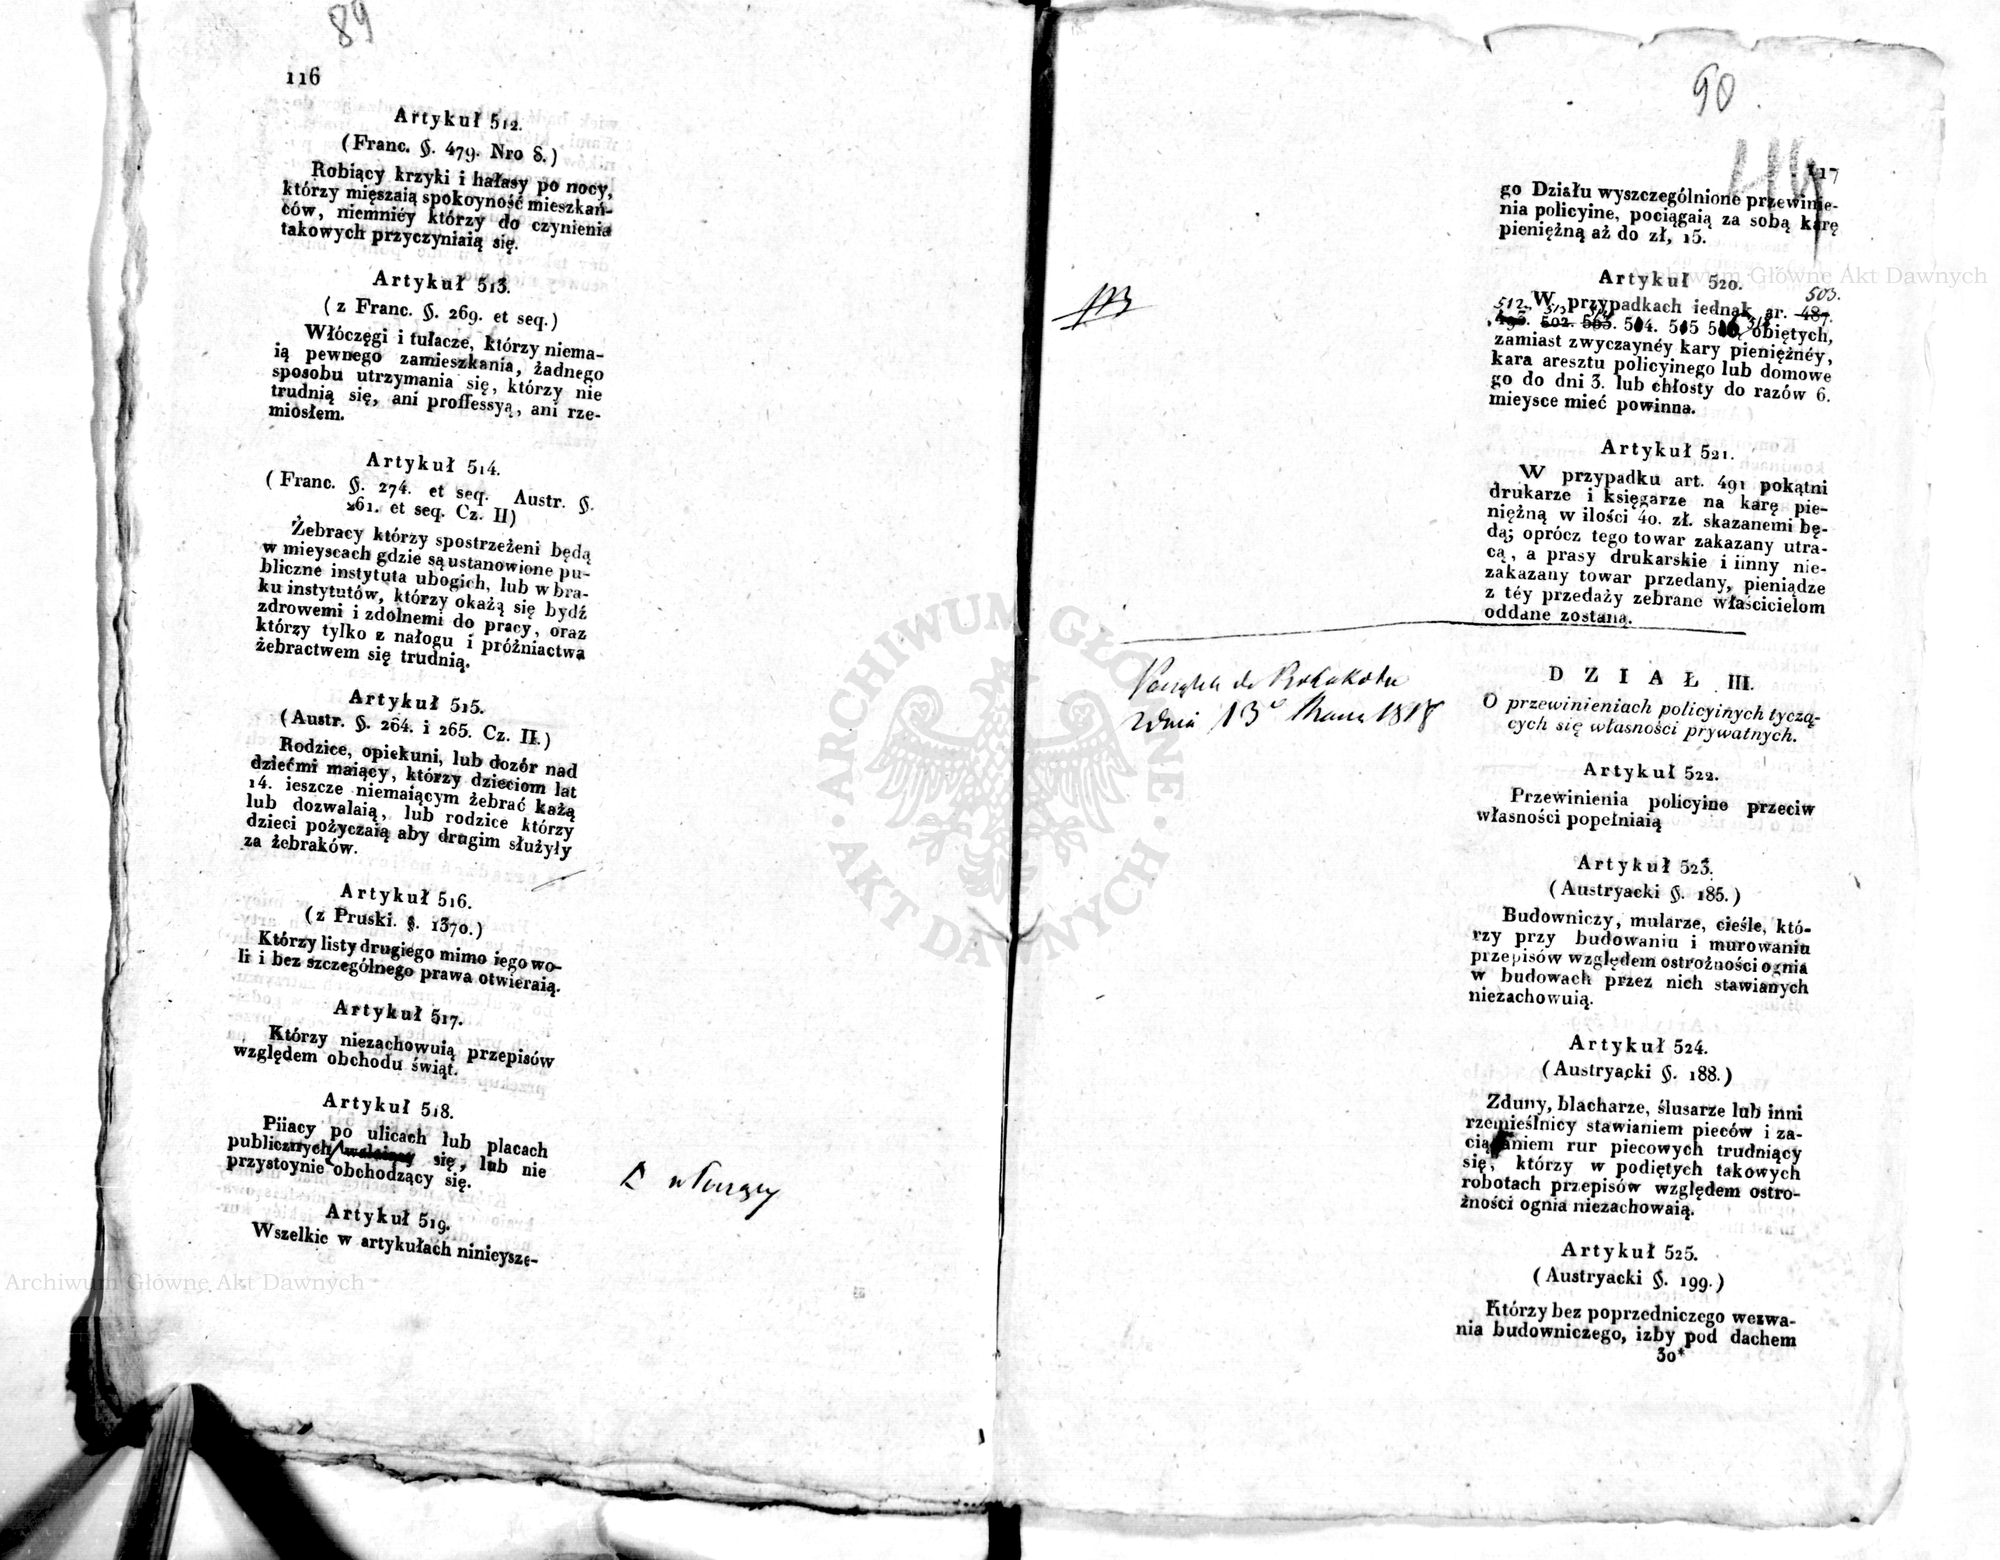 89
116
Artykuł 512.
(Franc. §. 479. Nro 8.)
Robiący krzyki i hałasy po nocy,
którzy mięszaią spokoyność mieszkań-
ców, niemniéy którzy do czynienia
takowych przyczyniaią się.
Artykuł 513.
(z Franc. §. 269. et seq.)
Włóczęgi i tułacze, którzy niema-
ią pewnego zamieszkania, żadnego
sposobu utrzymania się, którzy nie
trudnią się, ani professyą, ani rze-
miosłem.
Artykuł 514.
(Franc. §. 274. et seq. Austr. §.
261. et seq. Cz. II)
Żebracy którzy spostrzeżeni będą
w mieyscach gdzie są ustanowione pu-
bliczne instytuta ubogich, lub w bra-
ku instytutów, którzy okażą się bydź
zdrowemi i zdolnemi do pracy, oraz
którzy tylko z nałogu i próżniactwa
żebractwem się trudnią.
Artykuł 515.
(Austr. §. 264. i 265. Cz. II.)
Rodzice, opiekuni, lub dozór nad
dziećmi maiący, którzy dzieciom lat
14. ieszcze niemaiącym żebrać każą
lub dozwalaią, lub rodzice którzy
dzieci pożyczaią aby drugim służyły
za żebraków.
Artykuł 516.
(z Pruski. §. 1370.)
Którzy listy drugiego mimo iego wo-
li i bez szczególnego prawa otwieraią.
Artykuł 517.
Którzy niezachowuią przepisów
względem obchodu świąt.
Artykuł 518.
Piiacy po ulicach lub placach
publicznych się, lub nie
przystoynie obchodzący się.
Artykuł 519.
Wszelkie w artykułach ninieysze-
90
117
go Działu wyszczególnione przewinie-
nia policyine, pociągaią za sobą karę
pieniężną aż do zł, 15.
Artykuł 520.
503.
W przypadkach iednak ar. 487.
512. 513
493. 502. 503. 514. 515 516 obiętych,
zamiast zwyczaynéy kary pieniężnéy,
kara aresztu policyinego lub domowe
go do dni 3. lub chłosty do razów 6.
mieysce mieć powinna.
113
Artykuł 521.
W przypadku art. 491 pokątni
drukarze i księgarze na karę pie-
niężną w ilości 40. zł. skazanemi bę-
dą; oprócz tego towar zakazany utra-
cą, a prasy drukarskie i iinny nie-
zakazany towar przedany, pieniądze
z téy przedaży zebrane właścicielom
oddane zostaną.
z dnia 13º 1818
D Z I A Ł III.
O przewinieniach policyinych tyczą-
cych się własności prywatnych.
Artykuł 522.
Przewinienia policyine przeciw
własności popełniaią
Artykuł 523.
(Austryacki §. 185.)
Budowniczy, mularze, cieśle, któ-
rzy przy budowaniu i murowaniu
przepisów względem ostrożności ognia
w budowach przez nich stawianych
niezachowuią.
Artykuł 524.
(Austryacki §. 188.)
Zduny, blacharze, ślusarze lub inni
rzemieślnicy stawianiem pieców i za-
ciąganiem rur piecowych trudniący
się, którzy w podiętych takowych
robotach przepisów względem ostro-
żności ognia niezachowaią.
Artykuł 525.
(Austryacki §. 199.)
Którzy bez poprzedniczego wezwa-
nia budowniczego, izby pod dachem
30*
ARCHIWUM GŁÓWNE
AKT DAWNYCH
Archiwum Główne Akt Dawnych
Archiwum Główne Akt Dawnych